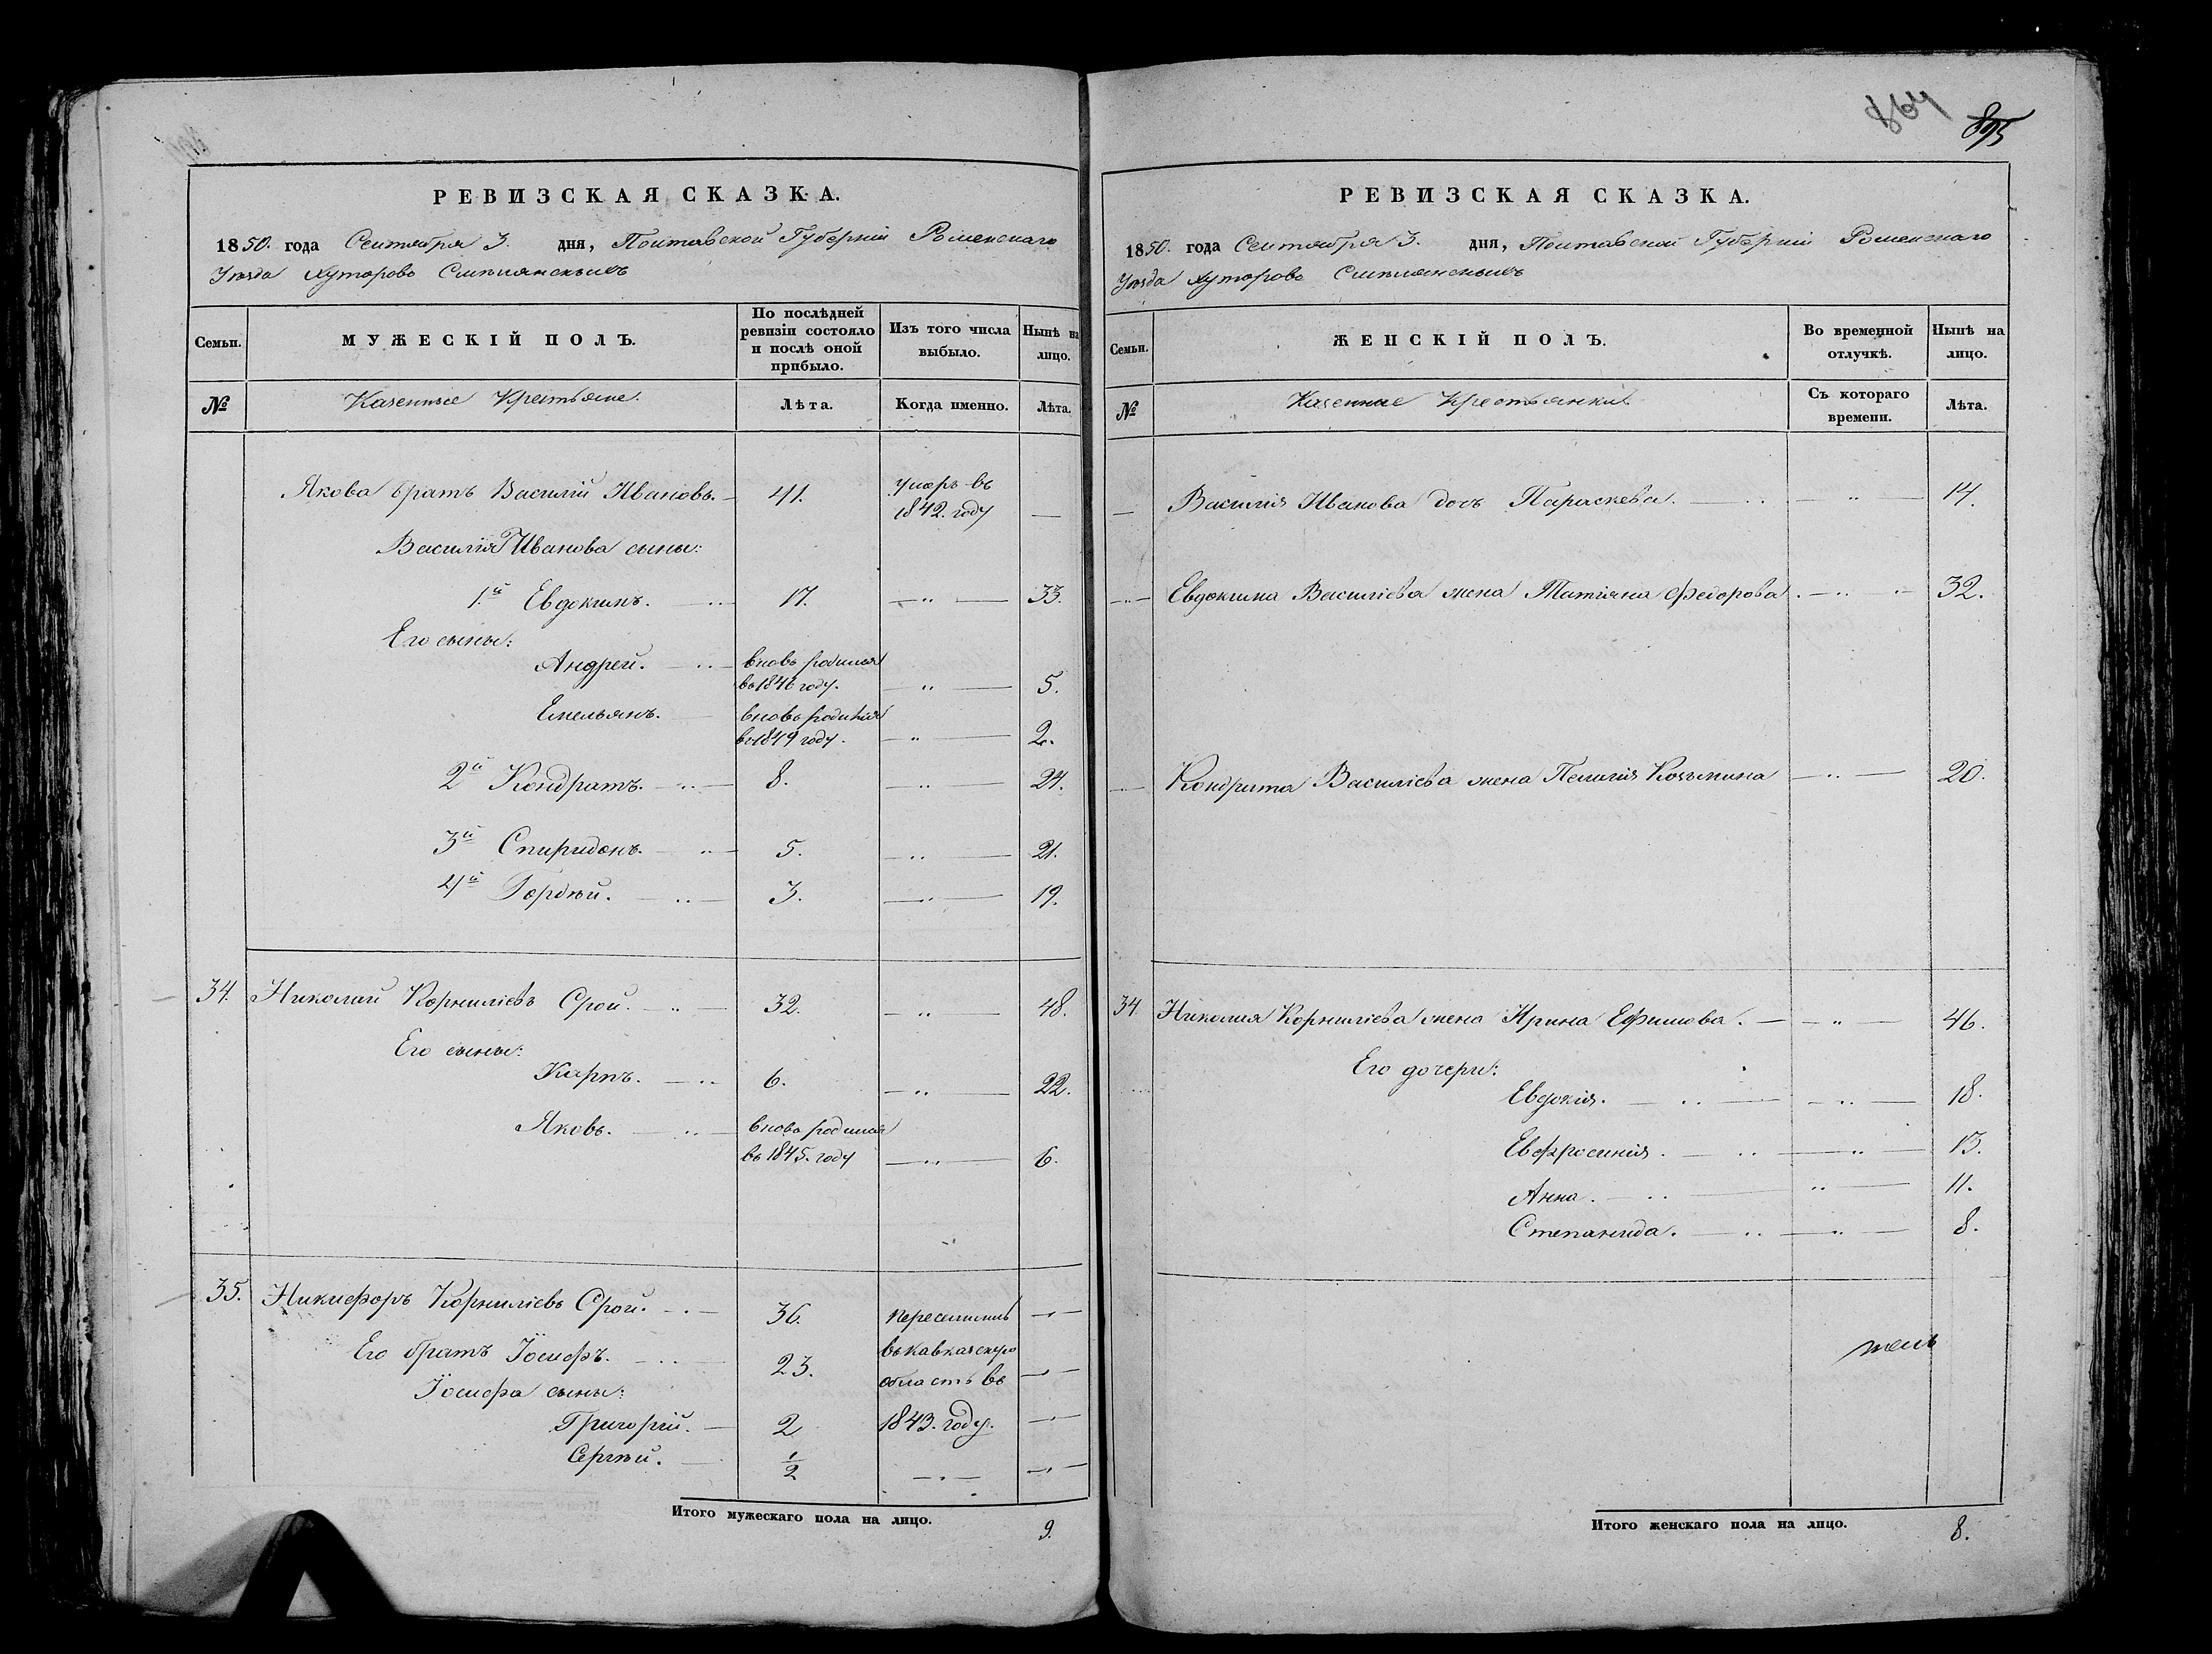 864
895
РЕВИЗСКАЯ СКАЗКА.
1850. года Сентября 3. дня, Полтавской Губерніи Роменскаго
Уѣзда Хуторовъ
Семьи.
МУЖЕСКІЙ ПОЛЪ.
По послѣдней ревизіи состояло и послѣ оной прибыло.
Изъ того числа выбыло.
Нынѣ на лицо.
№
Казенные Крестьяне.
Лѣта.
Когда именно.
Лѣта.
Якова братъ Василій Ивановъ. — 41. умеръ въ 1842. году —
Василія Иванова сыны:
1.й Евдокимъ. — 17. — „ — 33.
Его сыны:
Андрей. — вновь родился въ 1846 году. — „ — 5.
Емельянъ. вновь родился въ 1849 году. — „ — 2.
2й Кондратъ. — 8. — „ — 24.
3й Спиридонъ. — 5. — „ — 21.
4й Гордѣй. — 3. — „ — 19.
34. Николай Корниліевъ Срой. — 32. — „ — 48.
Его сыны:
Карпъ. — 6. — „ — 22.
Яковъ. — вновь родился въ 1845. году — „ — 6.
35. Никифоръ Корниліевъ Срой. — 36. переселились — „ —
Его братъ Іосифъ. — 23. въ Кавказскую область въ — „ —
Іосифа сыны:
Григорій. — 2 1843. году. — „ —
Сергѣй. — 1/2 — „ — — „ —
Итого мужескаго пола на лицо. 9.
РЕВИЗСКАЯ СКАЗКА.
1850. года Сентября 3. дня, Полтавской Губерніи Роменскаго
Уѣзда Хуторовъ
Семьи.
ЖЕНСКІЙ ПОЛЪ.
Во временной отлучкѣ.
Нынѣ на лицо.
№
Казенные Крестьянки
Съ котораго времени.
Лѣта.
— Василія Иванова дочь Параскева. — „ — 14.
— „ — Евдокима Василіева жена Татіяна Федорова. — „ — 32.
— Кондрата Василіева жена Пелагія Козмина — „ — 20.
34. Николая Корниліева жена Ирина Ефимова. — „ — 46.
Его дочери:
Евдокія. — „ — 18.
Евфросинія. — „ — 13.
Анна. — „ — 11.
Степанида. — „ — 8.
Итого женскаго пола на лицо. 8.